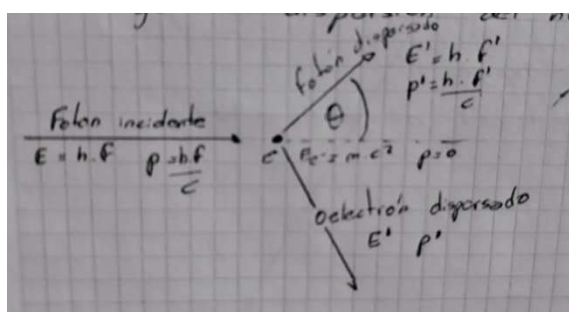 dispersión del
Fotón dispersado
E' = h.f'
p' = h.f'
c
θ
Foton incidente
E = h.f p = h.f
c
e Ee = m.c² p=0
electrón dispersado
E' p'